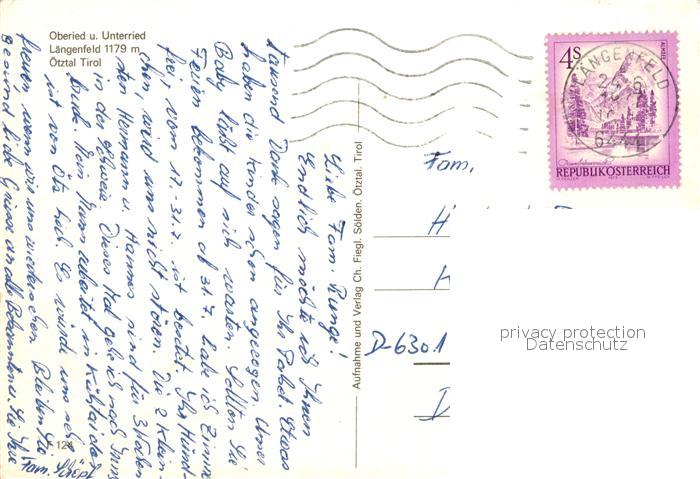 Oberied u. Unterried
Längenfeld 1179 m
Ötztal Tirol
Liebe Fam. Runge!
Endlich möchte ich Ihnen
tausend Dank sagen für Ihr Paket. Etwas
haben die Kinder schon angezogen. Unser
Baby läßt auf sich warten. Sollten Sie
Ferien bekommen ab 31.7. habe ich Zimmer
frei vom 17.-31.7. ist besetzt. Ihr Hünd-
chen, wird uns nicht stören. Die 2 Klein-
sten Hermann u. Hannes sind für 3 Wochen
in der Schweiz. Dieses Mal gehe ich nach Zams
Mein Mann arbeitet in Kühtai das
ist von Ötz hoch. Es würde uns sehr
freuen wenn wir uns wiedersehen. Bleiben Sie
Gesund liebe Grüsse an alle Bekannten Sie Ihre
Fam.
124
Aufnahme und Verlag Ch. Fiegl. Sölden. Ötztal. Tirol
4 S
ALMSEE
REPUBLIK ÖSTERREICH
LÄNGENFELD
6444
Fam.
H
D-6301
privacy protection
Datenschutz